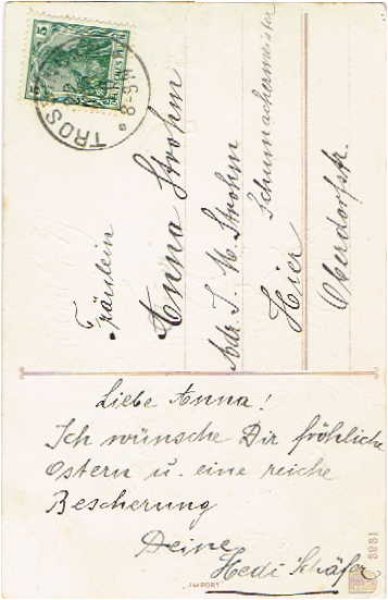 Fräulein
Anna Strohm
Adr. J. M. Strohm
Schumachermeister
Hier
Oberdorfstr.
5
TROSS
8-9N
Liebe Anna!
Ich wünsche Dir fröhliche
Ostern u. eine reiche
Bescherung
Deine
Hedi Schäfer
IMPORT
1898